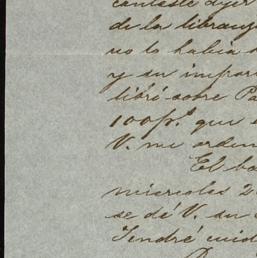 contesté ayer
de la libranz
no lo habia
y su impor
libré sobre Pa
100ps. que
V. me orden
El ba
miércoles 2
se dé V. su
Tendré cuid